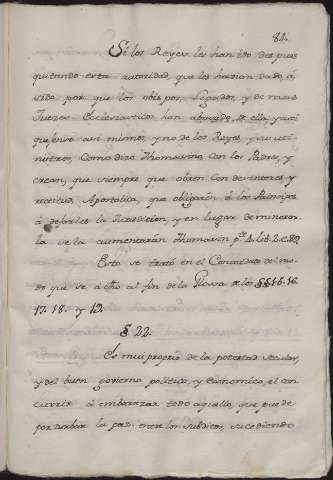 84.
Si los Reyes les han ido despues
quitando esta autoridad, que les havian dado, ha
sido por que los obispos, Legados, y demas
Juezes Eclesiasticos han abusado de ella, y asi
quexense asi mismos, y no de los Reyes, y sus Mi-
nistros, como dize Thomasino, con los Padres, y
crean, que siempre que obren con desinteres y
rectitud, Apostolica, que obligarán á los Principes
á deferirles la Jurisdicion, y en lugar de minorar-
la se la aumentarán Thomasin pte. 2. lib. 2. c. 80
Esto se trató en el Concordato del mo-
do que se á dho al fin de la Glosa de los §§ 15. 16.
17. 18. y 19.
§ 22.
Es mui proprio de la potestad secular,
y del buen govierno politico, y economico, el con-
currir á embarazar todo aquello, que puede
perturbar la paz entre los subditos, sucediendo